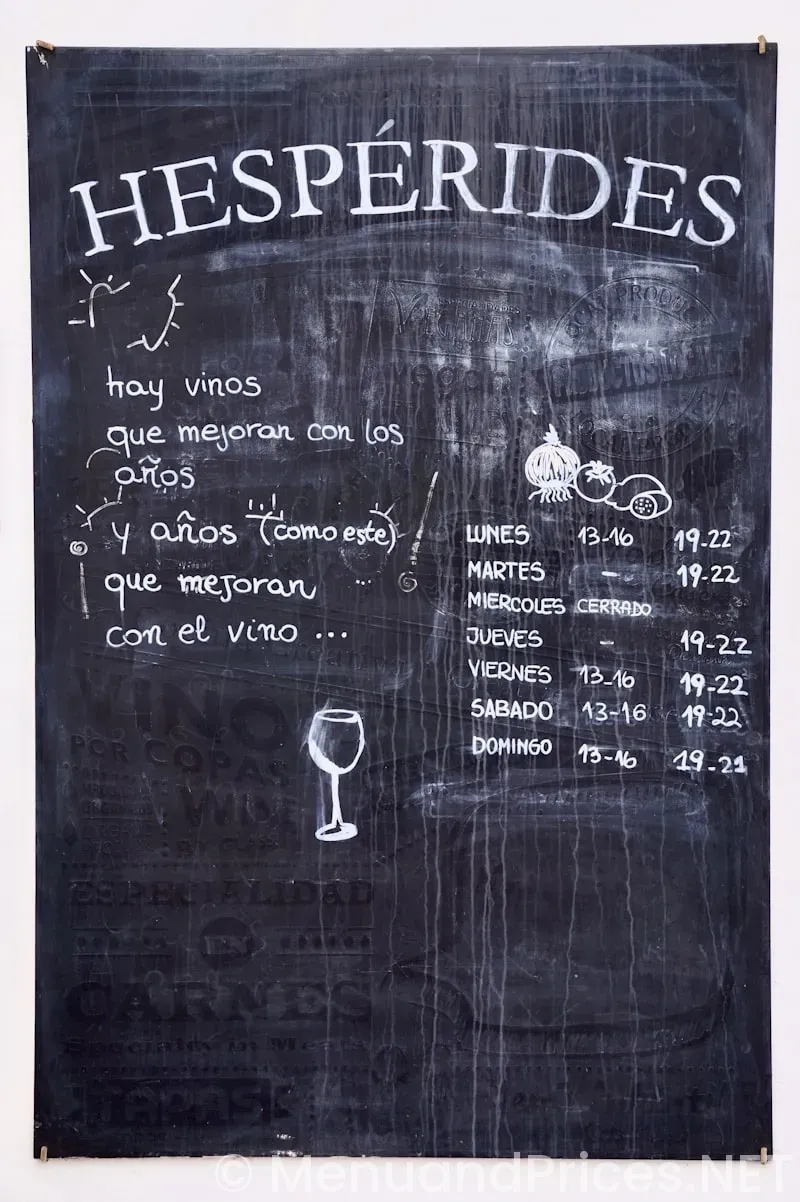 HESPÉRIDES
hay vinos
que mejoran con los
años
y años (como este)
que mejoran
con el vino ...
LUNES 13-16 19-22
MARTES - 19-22
MIERCOLES CERRADO
JUEVES - 19-22
VIERNES 13-16 19-22
SABADO 13-16 19-22
DOMINGO 13-16 19-21
VINO
POR COPAS
WINE
BY GLASS
ESPECIALIDAD
EN
CARNES
Specialty in Meats
TAPAS
© MenuandPrices.NET